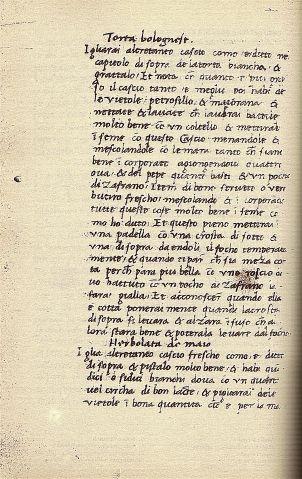 Torta bolognese.
Pigliarai altretanto cascio como e ditto nel
capitolo di sopra de la torta biancha, &
grattalo. Et nota che quanto e piu grasso
il cascio tanto e meglio poi habi de
le vietole petrosillo & maiorana &
nettate & lavate che laverai battile
molto bene con un coltello & metterai
inseme con questo cascio menandole &
mescolandole con le mani tanto che siano
bene incorporate agiongendovi quattro
ova, & del pepe quanto basti & un pocho
di zafrano. Item di bono strutto o ver
butiro frescho mescolando & incorporando
tutte queste cose molto bene inseme como
ho ditto. Et questo pieno metterai in
una padella con una crosta di sotto &
una di sopra dandoli il focho temperata
mente; & quando ti pare che sia meza cotta
perche para piu bella con uno roscio di
ovo battuto con un pocho di zafrano la
farai gialla. Et a conoscer quando ella
e cotta ponerai mente quando la crosta
di sopra si levara & alzara in suso che al
lora stara bene & poterala levare dal focho.
Herbolata di maio
Piglia altretanto cascio frescho como e ditto
di sopra & pistalo molto bene, & habi quin
dici o sidici bianchi d'ova con un quar
di bon lacte, & pigliarai dele
vietole in bona quantita cioe per la ma